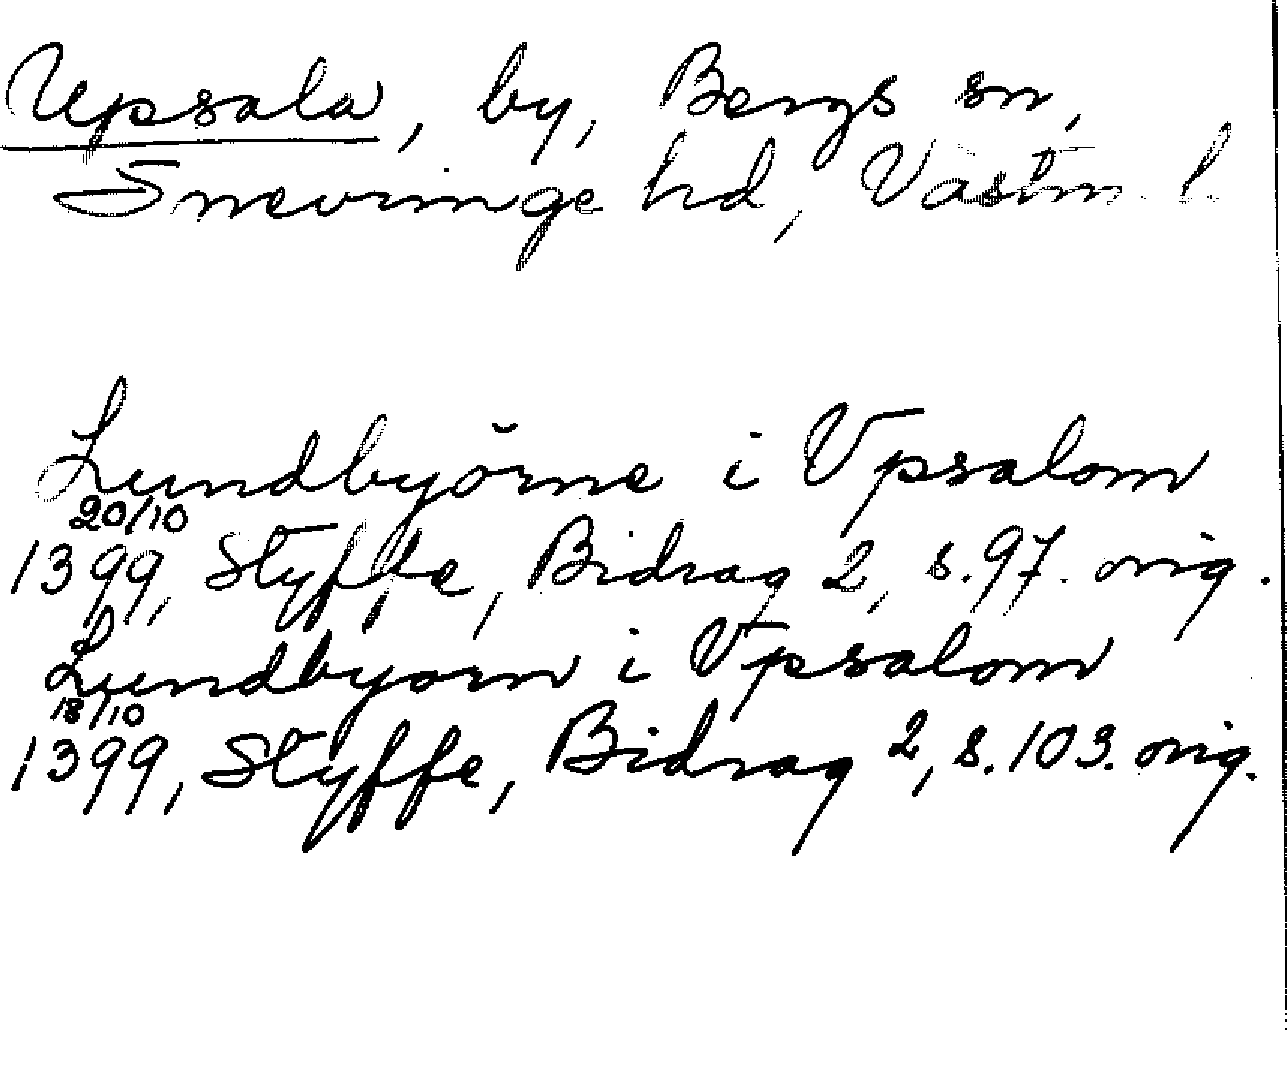 Upsala, by, Bergs sn,
Snevringe hd, Västm. l.
Lundbyörne i Vpsalom
20/10
1399, Styffe, Bidrag 2, s. 97. orig.
Lundbyorn i Vpsalom
18/10
1399, Styffe, Bidrag 2, s. 103. orig.